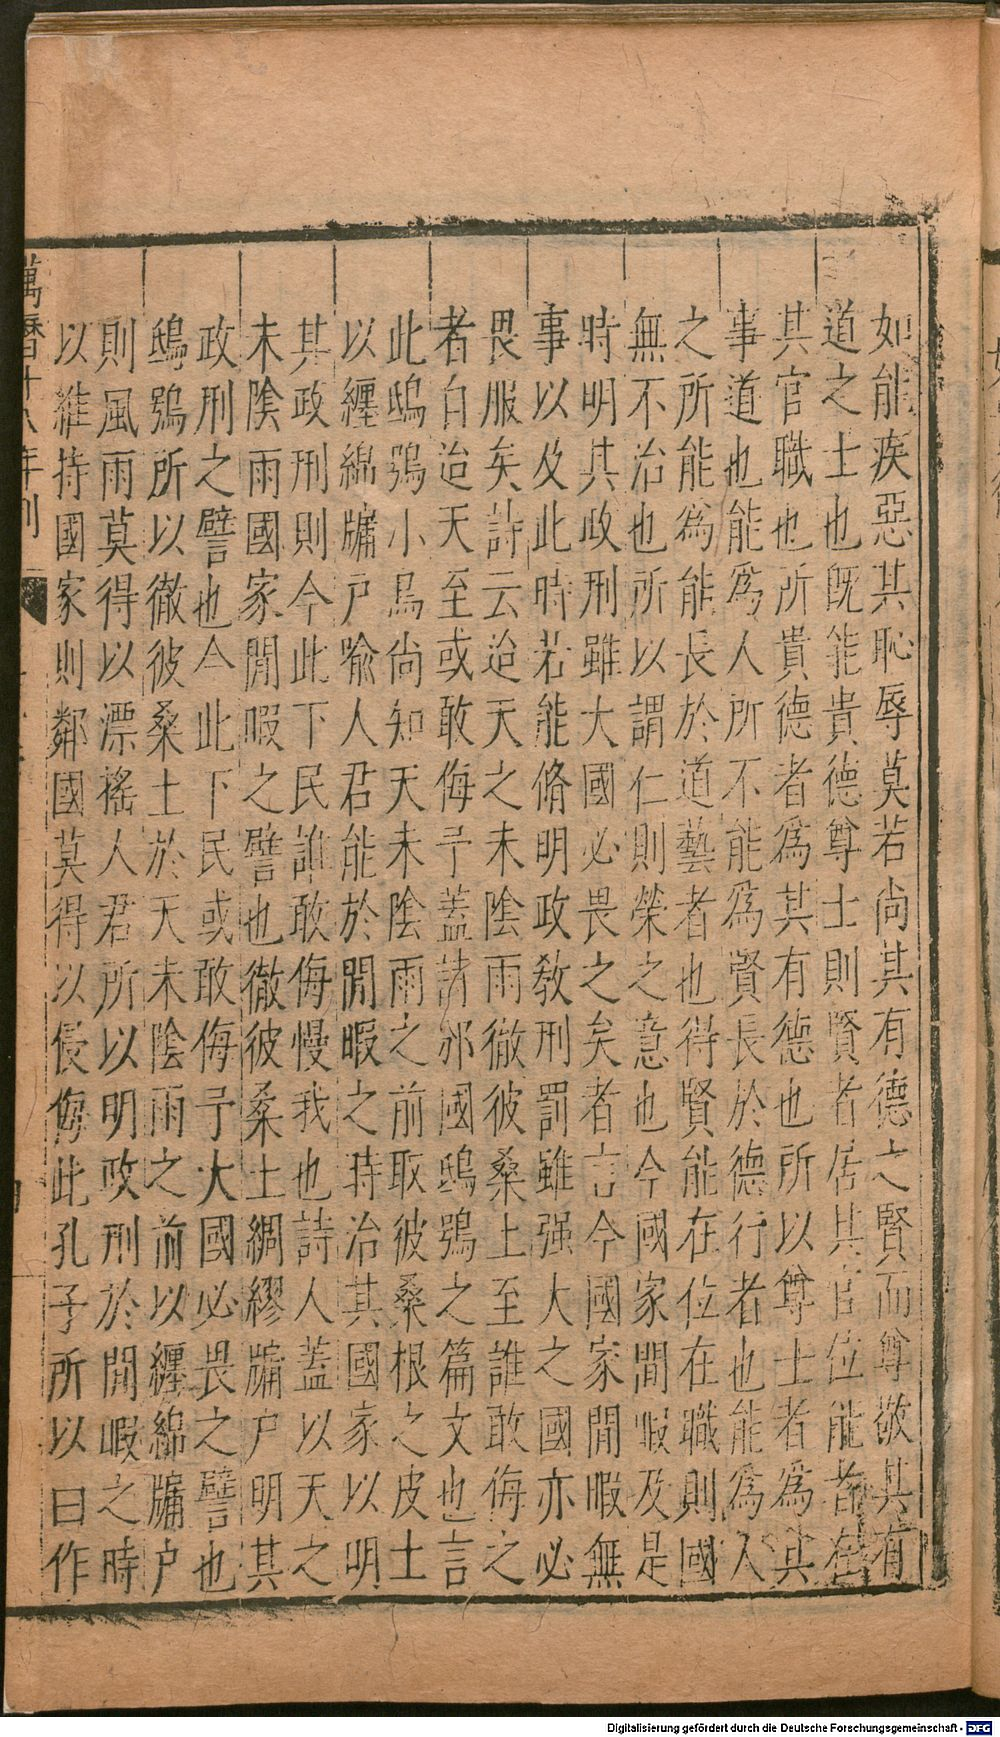 如能疾惡其恥辱莫若尚其有德之賢而尊敬其有
道之士也既能貴德尊士則賢者居其官位能者在
其官職也所貴德者爲其有德也所以尊士者爲其
事道也能爲人所不能爲賢長於德行者也能爲人
之所能爲能長於道藝者也得賢能在位在職則國
無不治也所以謂仁則榮之意也今國家閒暇及是
時明其政刑雖大國必畏之矣者言今國家閒暇無
事以及此時若能脩明政教刑罰雖强大之國亦必
畏服矣詩云迨天之未陰雨徹彼桑土至誰敢侮之
者自迨天至或敢侮予蓋詩邠國鴟鴞之篇文也言
此鴟鴞小鳥尚知天未陰雨之前取彼桑根之皮土
以纏綿牖戶喻人君能於閒暇之時治其國家以明
其政刑則今此下民誰敢侮慢我也詩人蓋以天之
未陰雨國家閒暇之譬也徹彼桑土綢繆牖戶明其
政刑之譬也今此下民或敢侮予大國必畏之譬也
鴟鴞所以徹彼桑土於天未陰雨之前以纏綿牖戶
則風雨莫得以漂搖人君所以明政刑於閒暇之時
以維持國家則鄰國莫得以侵侮此孔子所以曰作
萬曆十八年刊
Digitalisierung gefördert durch die Deutsche Forschungsgemeinschaft - DFG